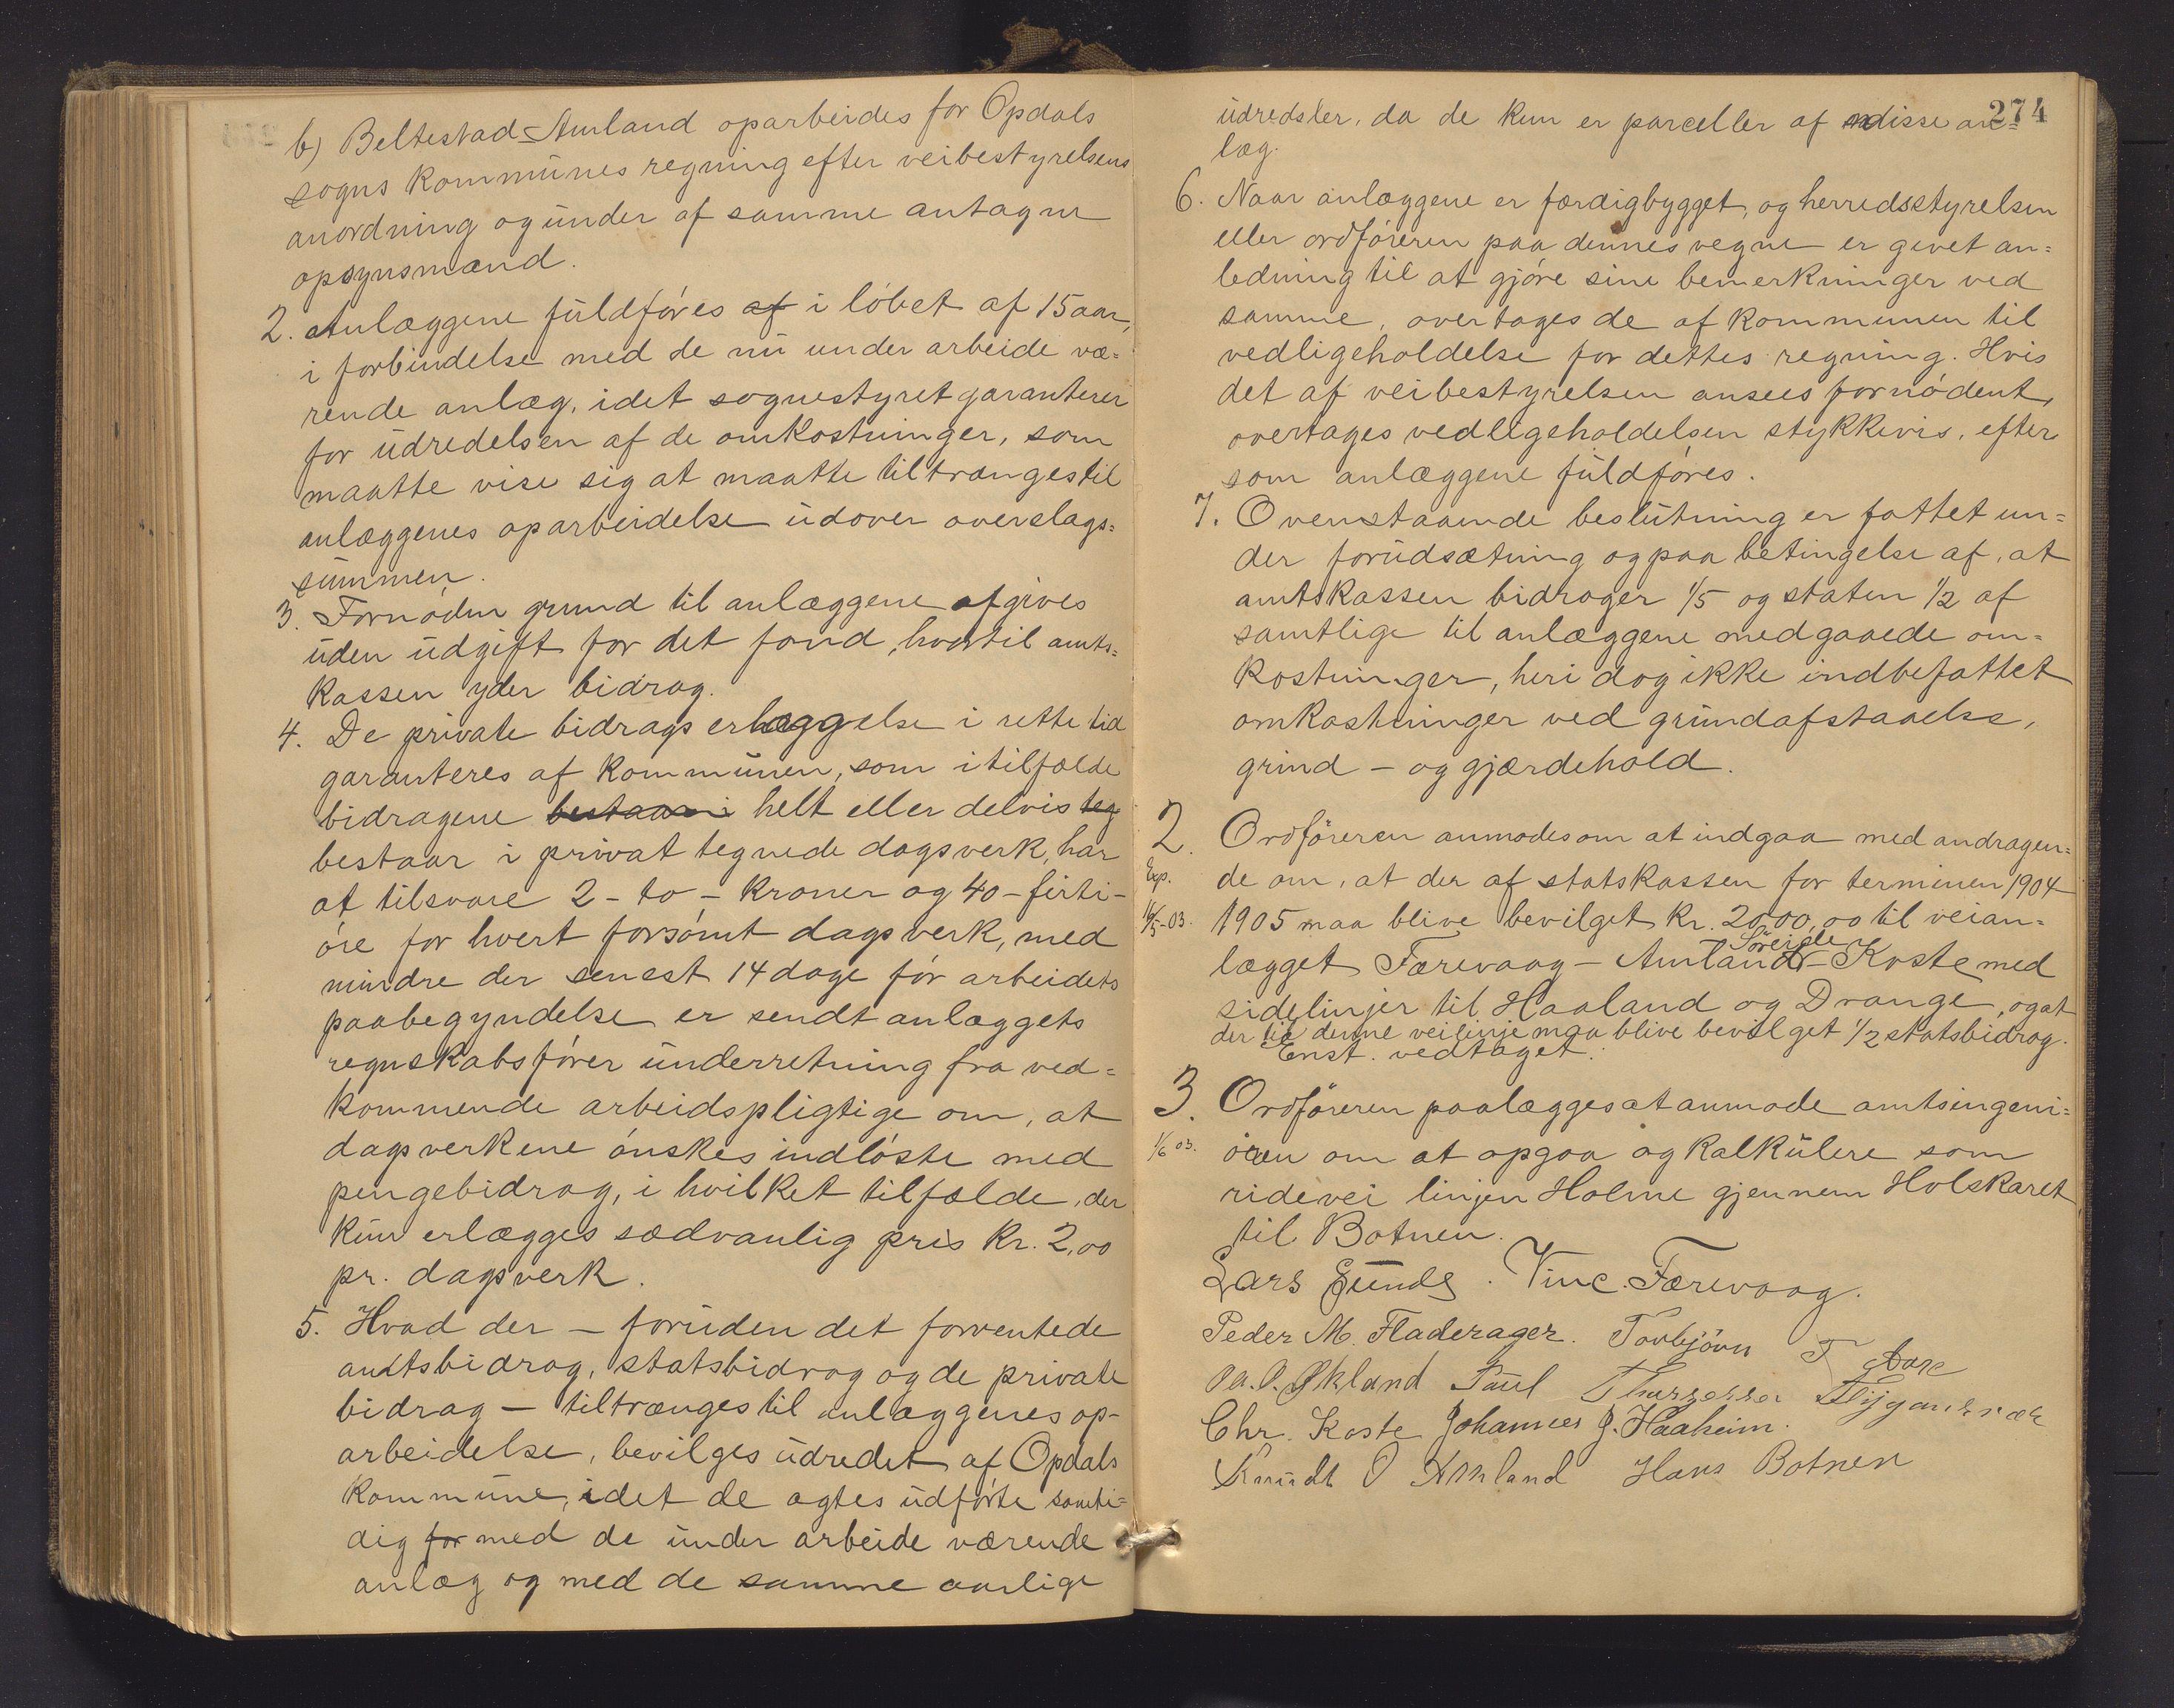 b) Beltestad-Amland oparbeides for Opdals
sogns kommunes regning efter veibestyrelsens
anordning og under af samme antagne
opsynsmænd.
2. Anlæggene fuldføres af i løbet af 15 aar,
i forbindelse med de nu under arbeide væ=
rende anlæg, idet sognestyret garanterer
for udredelsen af de omkostninger, som
maatte vise sig at maatte tiltrænges til
anlæggenes oparbeidelse udover overslags=
summen.
3. Fornøden grund til anlæggene afgives
uden udgift for det fond, hvortil amts=
kassen yder bidrag.
4. De private bidrags erlæggelse i rette tid
garanteres af kommunen, som i tilfælde
bidragene bestaar i helt eller delvis teg
bestaar i privat tegnede dagsverk, har
at tilsvare 2 - to - kroner og 40 - førti -
øre for hvert forsømt dagsverk, med
mindre der senest 14 dage før arbeidets
paabegyndelse er sendt anlæggets
regnskabsfører underretning fra ved=
kommende arbeidspligtige om, at
dagsverkene ønskes indløste med
pengebidrag, i hvilket tilfælde, der
kun erlægges sædvanlig pris kr. 2,00
pr. dagsverk.
5. Hvad der - foruden det forventede
amtsbidrag, statsbidrag og de private
bidrag - tiltrænges til anlæggenes op-
arbeidelse, bevilges udredet af Opdals
kommune, idet de agtes udførte samti=
dig for med de under arbeide værende
anlæg og med de samme aarlige
274
udredsler, da de kun er parceller af disse an=
læg.
6. Naar anlæggene er færdigbygget, og herredsstyrelsen
eller ordføreren paa dennes vegne er givet an=
ledning til at gjøre sine bemerkninger ved
samme, overtages de af kommunen til
vedligeholdelse for dettes regning. Hvis
det af veibestyrelsen ansees fornødent,
overtages vedligeholdelsen stykkevis, efter
som anlæggene fuldføres.
7. Ovenstaaende beslutning er fattet un=
der forudsætning og paa betingelse af, at
amtskassen bidrager 1/5 og staten 1/2 af
samtlige til anlæggene medgaaede om=
kostninger, heri dog ikke indbefattet
omkostninger ved grundafstaaelse,
grind - og gjærdehold.
2. Ordføreren anmodes om at indgaa med andragen=
Exp.
de om, at der af statskassen for terminen 1904
16/5-03.
1905 maa blive bevilget kr. 2000,00 til veian=
Søreide
lægget Færevaag - Amland - Koste med
sidelinjer til Haaland og Drange, og at
der til denne veilinje maa blive bevilget 1/2 statsbidrag.
Enst. vedtaget.
3. Ordføreren paalægges at anmode amtsingeni=
1/6 03.
øren om at opgaa og kalkulere som
ridevei linjen Holme gjennem Holskaret
til Botnen.
Lars Eunds. Vinc. Færevaag.
Peder M. Fladerager. Torbjørn T Aase
O. Økland Paul
Chr. Koste Johannes J. Haaheim.
Knudt O Amland Hans Botnen